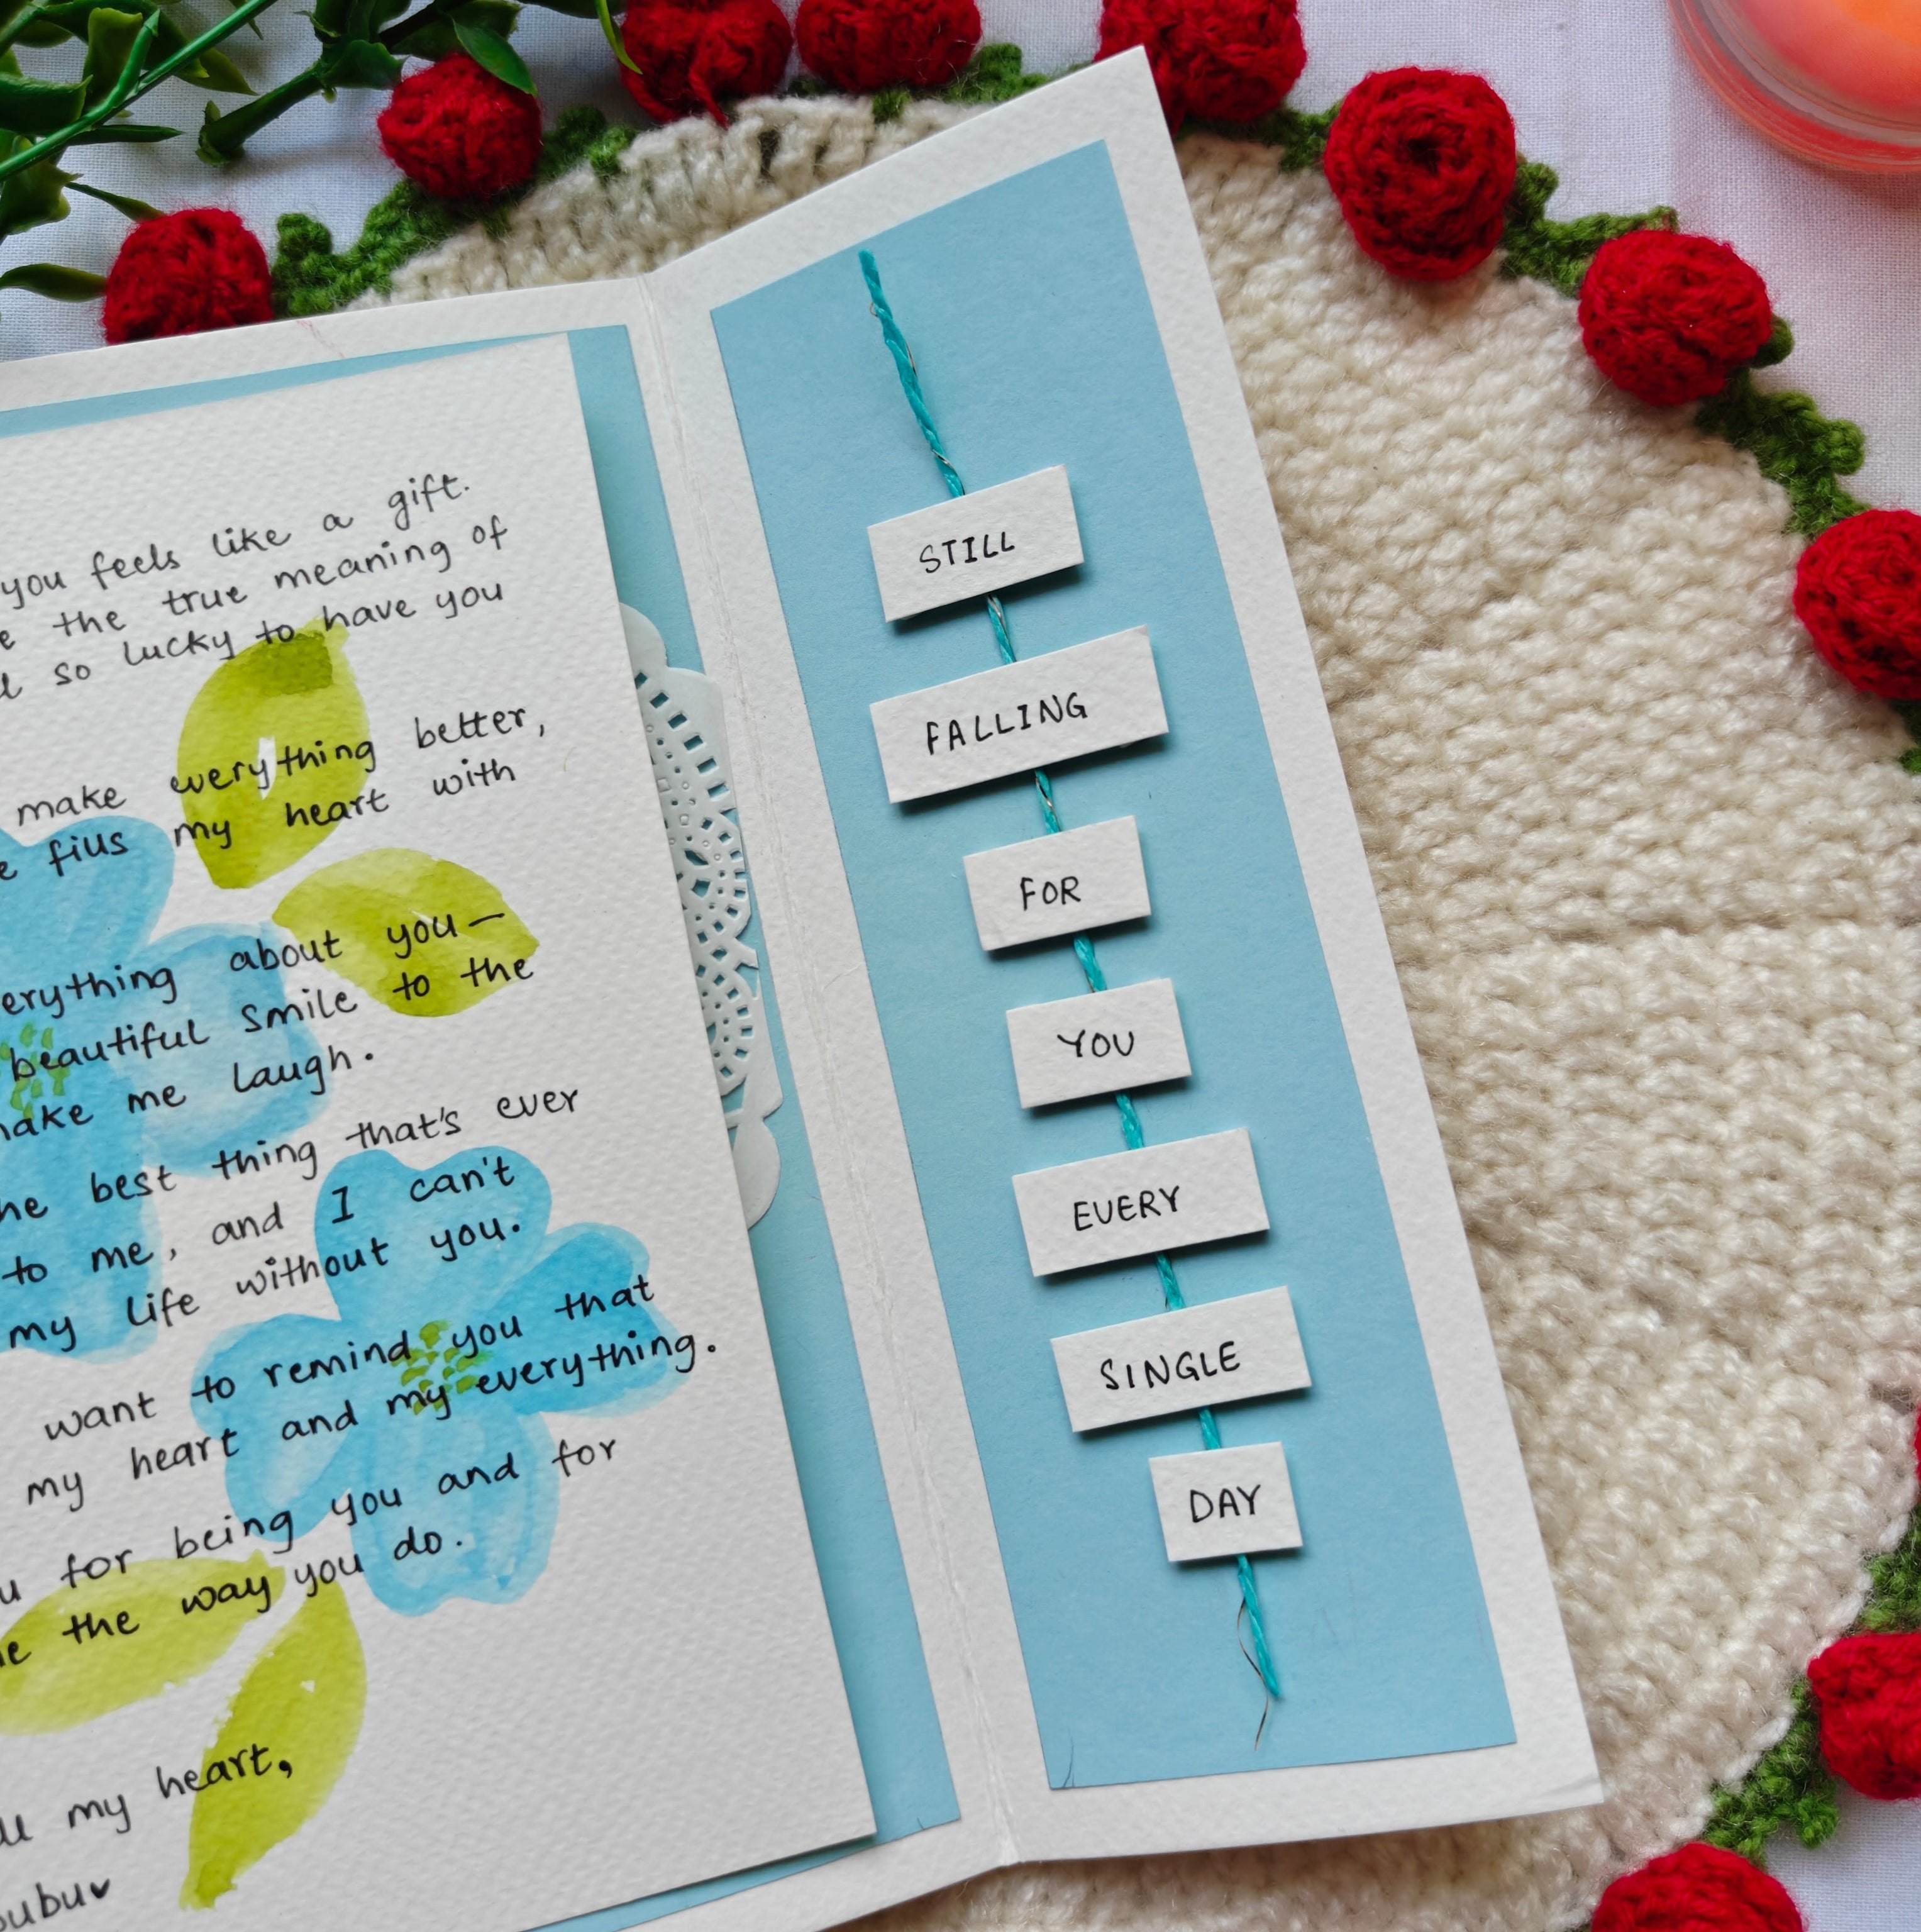 you feels like a gift.
the true meaning of
so lucky to have you
make everything better,
fius my heart with
erything about you—
beautiful smile to the
make me laugh.
he best thing that's ever
to me, and I can't
my life without you.
want to remind you that
my heart and my everything.
for being you and for
the way you do.
my heart,
bubu♥
STILL
FALLING
FOR
YOU
EVERY
SINGLE
DAY